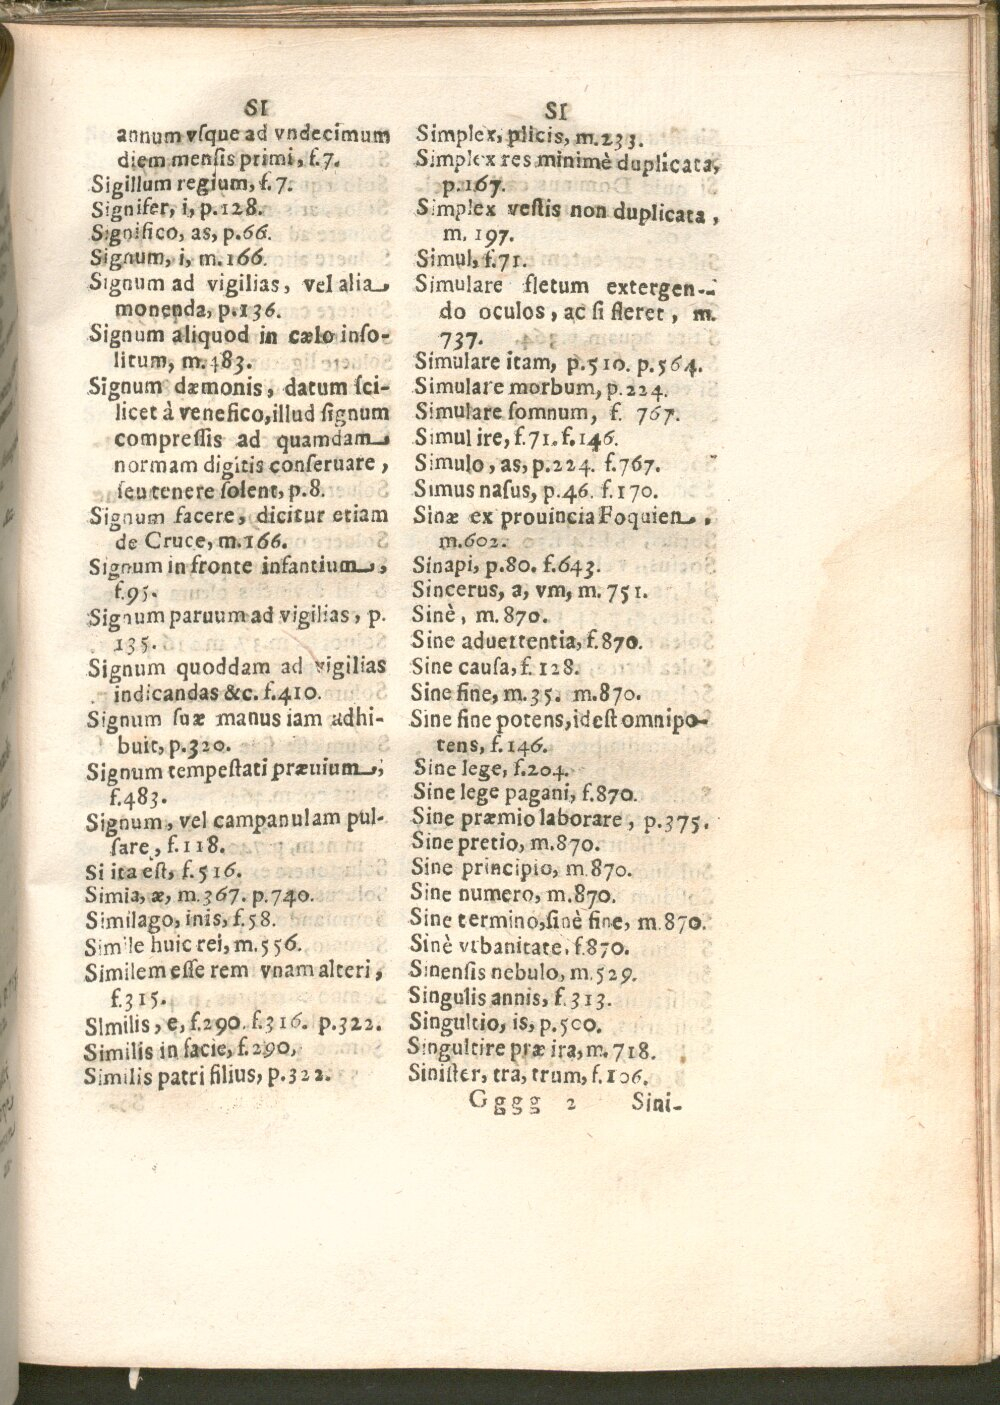 SI
annum vſque ad vndecimum
diem menſis primi, f.7.
Sigillum regium, f.7.
Signifer, i, p.128.
Significo, as, p.66.
Signum, i, m.166.
Signum ad vigilias, vel alia
monenda, p.136.
Signum aliquod in cælo inſo-
litum, m.483.
Signum dæmonis, datum ſci-
licet à venefico, illud ſignum
compreſſis ad quamdam
normam digitis conſeruare,
ſeu tenere ſolent, p.8.
Signum facere, dicitur etiam
de Cruce, m.166.
Signum in fronte infantium,
f.95.
Signum paruum ad vigilias, p.
135.
Signum quoddam ad vigilias
indicandas &c. f.410.
Signum ſuæ manus iam adhi-
buit, p.320.
Signum tempeſtati præuium,
f.483.
Signum, vel campanulam pul-
ſare, f.118.
Si ita eſt, f.516.
Simia, æ, m.367. p.740.
Similago, inis, f.58.
Simile huic rei, m.556.
Similem eſſe rem vnam alteri,
f.315.
SImilis, e, f.290. f.316. p.322.
Similis in facie, f.290,
Similis patri filius, p.322.
SI
Simplex, plicis, m.233.
Simplex res minimè duplicata,
p.167.
Simplex veſtis non duplicata,
m. 197.
Simul, f.71.
Simulare fletum extergen-
do oculos, ac ſi fleret, m.
737.
Simulare itam, p.510. p.564.
Simulare morbum, p.224.
Simulare ſomnum, f. 767.
Simul ire, f.71. f.146.
Simulo, as, p.224. f.767.
Simus naſus, p.46. f.170.
Sinæ ex prouincia Foquien,
m.602.
Sinapi, p.80. f.643.
Sincerus, a, vm, m.751.
Sinè, m.870.
Sine aduertentia, f.870.
Sine cauſa, f.128.
Sine fine, m.35. m.870.
Sine fine potens, id eſt omnipo-
tens, f.146.
Sine lege, f.204.
Sine lege pagani, f.870.
Sine præmio laborare, p.375.
Sine pretio, m.870.
Sine principio, m.870.
Sine numero, m.870.
Sine termino, ſinè fine, m.870.
Sinè vrbanitate. f.870.
Sinenſis nebulo, m.529.
Singulis annis, f.313.
Singultio, is, p.500.
Singultire præ ira, m.718.
Siniſter, tra, trum, f.106.
Gggg 2 Sini-